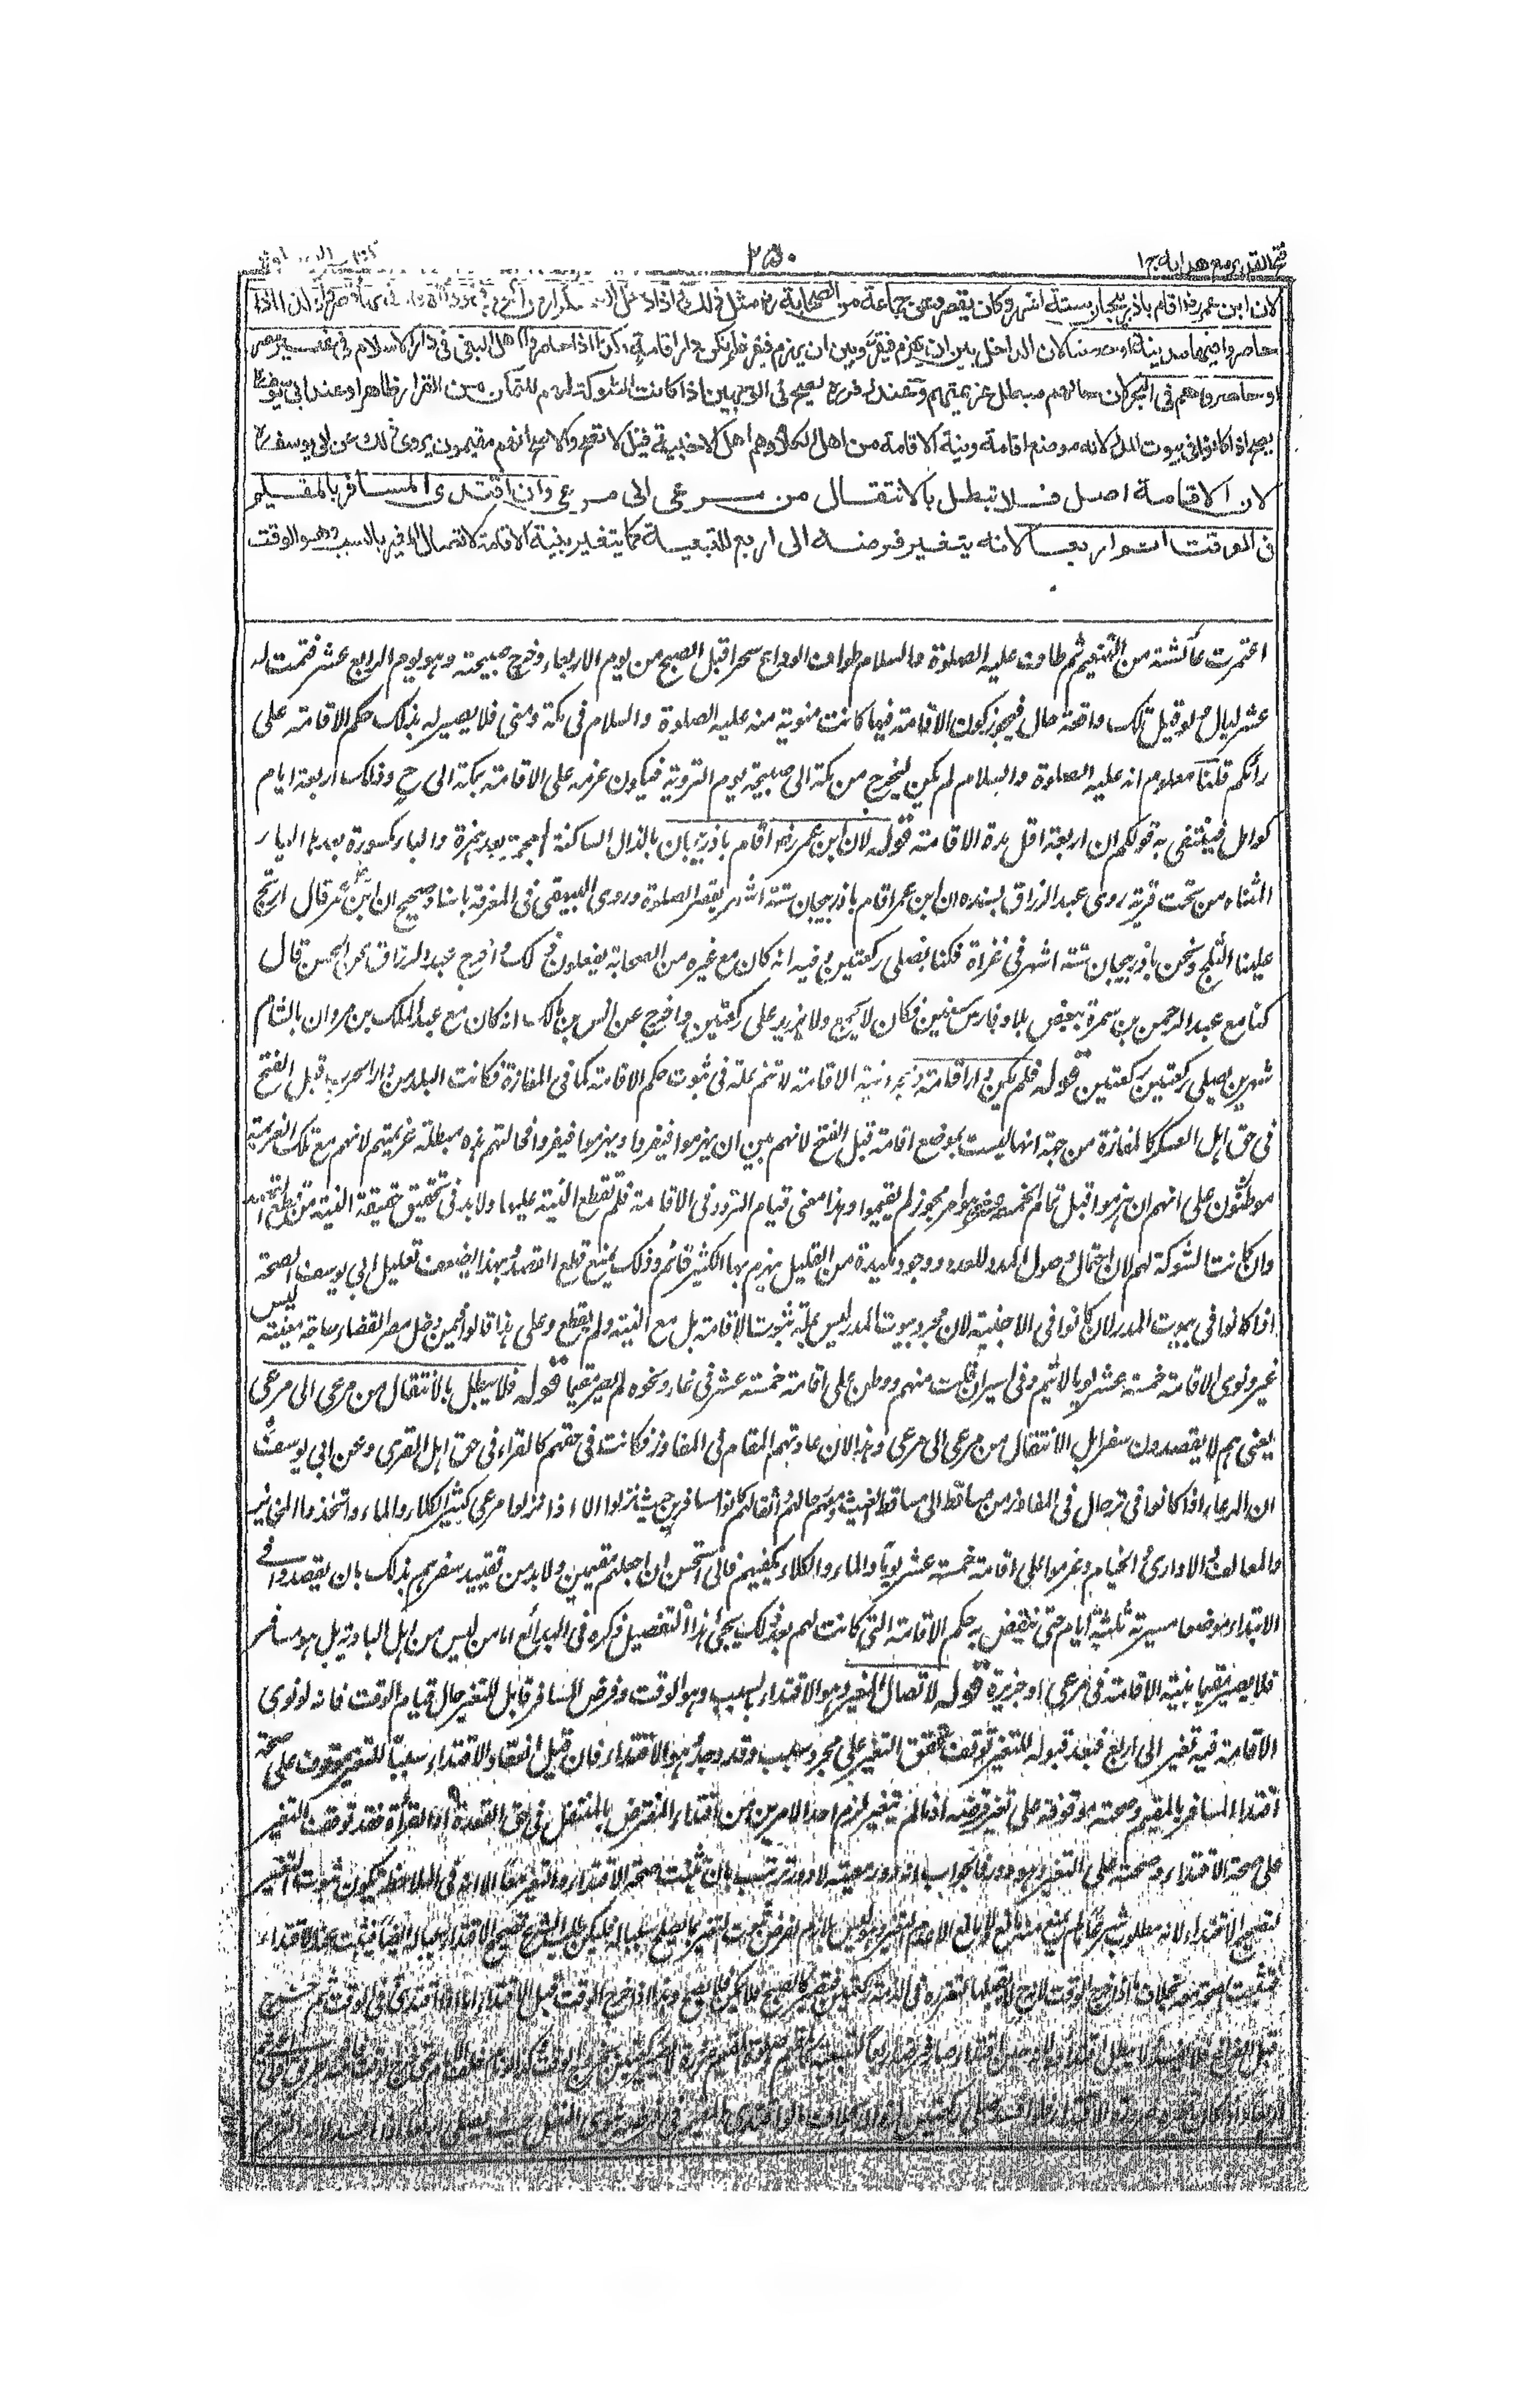 فتح القدير مع هداية ج ١
٢٥٠
لان ابن عمر رض اقام باذربيجان ستة اشهر وكان يقصر وعن جماعة من الصحابة رض مثل ذلك واذا دخل
حاصروا فيها مدينة او حصنا لان الداخل بين ان يهزم فيقر وبين ان يهزم فيفر فلم تكن دار اقامة وكذا اذا حاصروا اهل البغي في دار الاسلام في غير مصر
او حاصروهم في البحر لان حالهم مبطل عزيمتهم وعند زفر رح يصح في الوجهين اذا كانت الشوكة لهم للتمكن من القرار ظاهرا وعند ابي يوسف رح
يصح اذا كانوا في بيوت المدر لانه موضع اقامة ونية الاقامة من اهل الكلأ وهم اهل الاخبية قيل لا تصح والاصح انهم مقيمون يروى ذلك عن ابي يوسف رح
لان الاقامة اصل فلا تبطل بالانتقال من مرعى الى مرعى وان اقتدى المسافر بالمقيم
في الوقت اتم اربعا لانه يتغير فرضه الى اربع للتبعية كما يتغير بنية الاقامة لاتصال المغير بالسبب وهو الوقت
اعتمرت عائشة من التنعيم ثم طاف عليه الصلوة والسلام طواف الوداع سحرا قبل الصبح من يوم الاربعاء وخرج صبيحته وهو يوم الرابع عشر فتمت له
عشر ليال لو قيل تلك واقعة حال فيجوز كون الاقامة فيها كانت منوية منه عليه الصلوة والسلام في مكة ومنى فلا يصير له بذلك حكم الاقامة على
رأيكم قلنا معلوم انه عليه الصلوة والسلام لم يكن ليخرج من مكة الى صبيحة يوم التروية فيكون عزمه على الاقامة بمكة الى ح وذلك اربعة ايام
كوامل فينتفى به قولكم ان اربعة اقل مدة الاقامة قوله لان ابن عمر رض اقام باذربيجان بالذال الساكنة المعجمة بعد همزة والباء مكسورة بعدها الياء
المثناة من تحت قرية روى عبد الرزاق بسنده ان ابن عمر اقام باذربيجان ستة اشهر يقصر الصلوة وروى البيهقي في المعرفة باسناد صحيح ان ابن عمر قال ارتج
علينا الثلج ونحن باذربيجان ستة اشهر في غزاة فكنا نصلي ركعتين وفيه انه كان مع غيره من الصحابة يفعلون ذلك واخرج عبد الرزاق عن الحسن قال
كنا مع عبد الرحمن بن سمرة ببعض بلاد فارس سنين فكان لا يجمع ولا يزيد على ركعتين واخرج عن انس بن مالك انه كان مع عبد الملك بن مروان بالشام
شهرين يصلي ركعتين ركعتين قوله فلم تكن دار اقامة نية الاقامة لا تتم علة في ثبوت حكم الاقامة كما في المفازة فكانت البلد من دار الحرب قبل الفتح
في حق اهل العسكر كالمفازة من جهة انها ليست بموضع اقامة قبل الفتح لانهم بين ان يهزموا فيقروا ويهزموا فيفروا فحالتهم هذه مبطلة عزيمتهم لانهم مع تلك العزيمة
موطنون على انهم ان هزموا قبل تمام الخمسة عشر وهو امر مجوز لم يقيموا وهذا معنى قيام التردد في الاقامة فلم تقطع النية عليها ولا بد في تحقيق حقيقة النية من قطع
وان كانت الشوكة لهم لان احتمال وصول المدد للعدو ووجود مكيدة من القليل يهزم بها الكثير قائم وذلك يمنع قطع القصد وبهذا يضعف تعليل ابي يوسف الصحة
اذا كانوا في بيوت المدر لا ان كانوا في الاخبية لان مجرد بيوت المدر ليس علة ثبوت الاقامة بل مع النية ولم تقطع وعلى هذا قالوا فيمن دخل مصر القضاء حاجة معينة ليس
غير ونوى الاقامة خمسة عشر يوما لا يتم وفي اسير انفلت منهم ووطن على اقامة خمسة عشر في غار ونحوه لم يصر مقيما قوله فلا يبطل بالانتقال من مرعى الى مرعى
يعني هم لا يقصدون سفرا بل الانتقال من مرعى الى مرعى وهذا لان عادتهم المقام في المفاوز فكانت في حقهم كالقرى في حق اهل القرى وعن ابي يوسف
ان الرعاء اذا كانوا في ترحال في المفاوز من مساقط الى مساقط الغيث ومعهم رحالهم واثقالهم كانوا مسافرين حيث نزلوا الا اذا نزلوا مرعى كثير الكلاء والماء واتخذوا المخابز
والمعالف والاواري والخيام وعزموا على اقامة خمسة عشر يوما والماء والكلاء يكفيهم فاني استحسن ان اجعلهم مقيمين ولا بد من تقييد سفرهم بذلك بان يقصدوا في
الابتداء موضعا مسيرة ثلثة ايام حتى ينتقض به حكم الاقامة التي كانت لهم بعد ذلك يجئ هذا التفصيل ذكره في البدائع اما من ليس من اهل البادية بل هو مسافر
فلا يصير مقيما بنية الاقامة في مرعى او جزيرة قوله لاتصال المغير وهو الاقتداء بالسبب وهو الوقت وفرض المسافر قابل للتغير حال قيام الوقت فانه لو نوى
الاقامة فيه تغير الى اربع فبعد قبوله للتغير توقف تحقق التغير على مجرد سبب وقد وجد وهو الاقتداء فان قيل انعقاد الاقتداء سببا للتغير موقوف على صحة
اقتداء المسافر بالمقيم وصحته موقوفة على تغير فرضه اذ ما لم يتغير لزم احد الامرين من اقتداء المفترض بالمتنفل في حق القعدة او القرأة فقد توقف التغير
على صحة الاقتداء وصحته على التغير وهو دور فالجواب انه دور معية لا دور ترتيب بان تثبت صحة الاقتداء والتغير معا الا انه في الملاحظة يكون ثبوت التغير
لتصحيح الاقتداء لانه مطلوب شرعا ما لم يمنع منه مانع ولا مانع الا عدم التغير وهو ليس بلازم